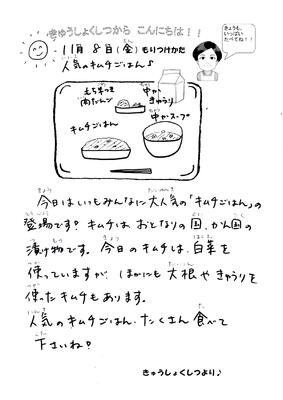 きゅうしょくしつから こんにちは!!
きょうも、
いっぱい
たべてね!!
11月 8日(金)もりつけかた
人気のキムチごはん♪
もち米つき
肉だんご
中か
きゅうり
キムチごはん
中かスープ
今日はいつもみんなに大人気の「キムチごはん」の
登場です? キムチは、おとなりの国、かん国の
漬け物です。今日のキムチは、白菜を
使っていますが、ほかにも大根やきゅうりを
使ったキムチもあります。
人気のキムチごはん、たくさん食べて
下さいね?
きゅうしょくしつより♪